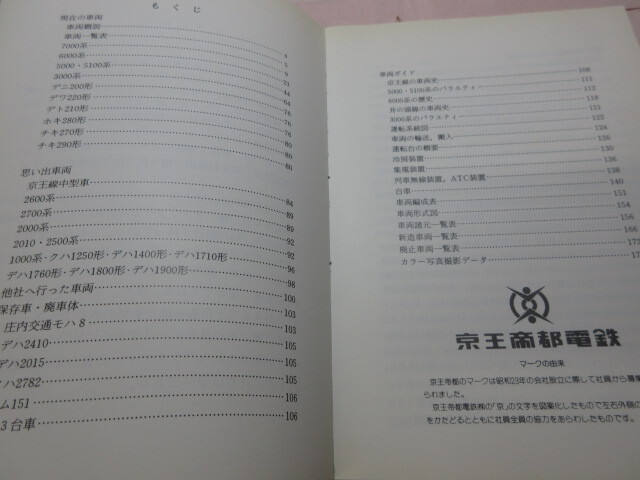 もくじ
現在の車両
車両概説 4
車両一覧表 5
7000系 9
6000系 21
5000・5100系 44
3000系 64
デニ200形 76
デワ220形 76
デト210形 76
ホキ280形 76
チキ270形 80
チキ290形 80
思い出車両
京王線中型車 84
2600系 89
2700系 89
2000系 92
2010・2500系 92
1000系・クハ1250形・デハ1400形・デハ1710形 96
デハ1760形・デハ1800形・デハ1900形 98
他社へ行った車両 100
保存車・廃車体 103
庄内交通モハ8 105
デハ2410 105
デハ2015 105
クハ2782 106
ム151 106
3台車
車両ガイド 108
京王線の車両史 111
5000・5100系のバラエティー 112
6000系の歴史 118
井の頭線の車両史 119
3000系のバラエティー 122
運転系統図 124
車両の輸送，搬入 126
運転台の概要 130
冷房装置
集電装置 135
列車無線装置，ATC装置 140
台車 151
車両編成表 154
車両形式図 156
車両諸元一覧表 166
新造車両一覧表 172
廃止車両一覧表
カラー写真撮影データ
京王帝都電鉄
マークの由来
京王帝都のマークは昭和23年の会社設立に際して社員から募集
られました。
京王帝都電鉄㈱の「京」の文字を図案化したもので左右外側の
をかたどるとともに社員全員の協力をあらわしたものです。